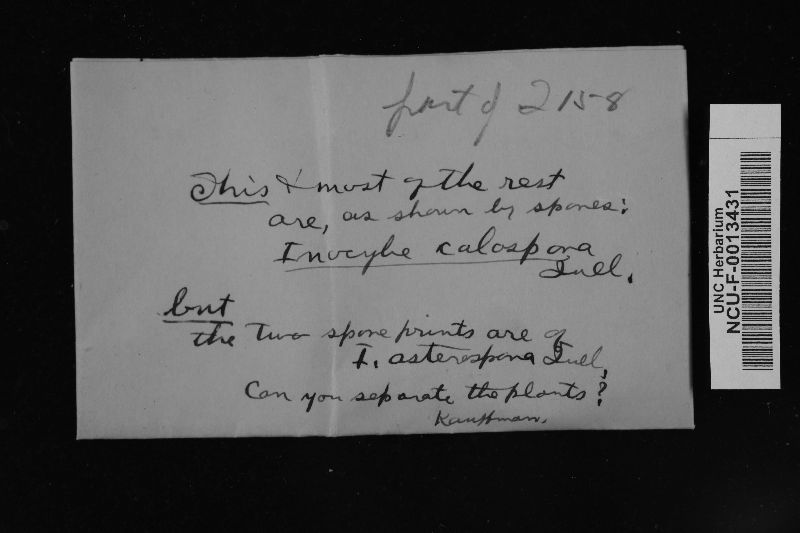 part of 2158
This & most of the rest
are, as shown by spores:
Inocybe calospora
Quel.
but
the two spore prints are of
I. asterospora Quel,
Can you separate the plants?
Kauffman.
UNC Herbarium
NCU-F-0013431